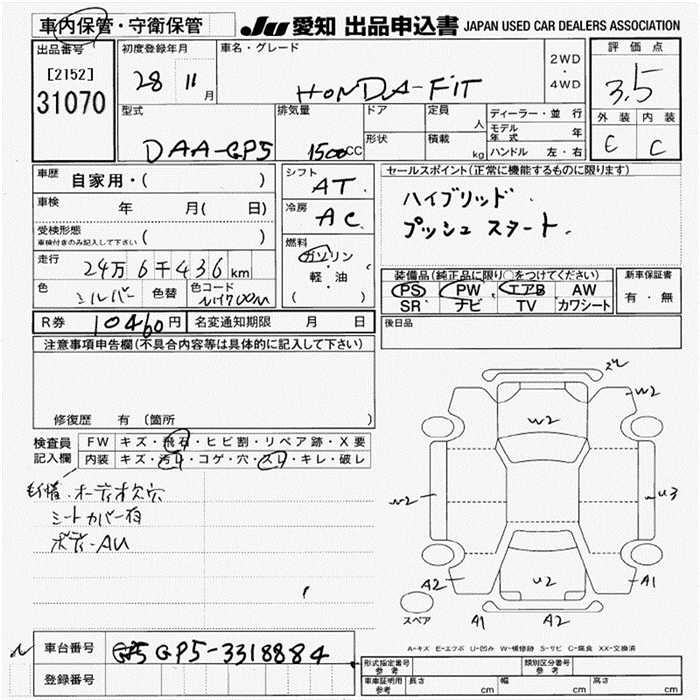 車内保管・守衛保管
JU 愛知 出品申込書 JAPAN USED CAR DEALERS ASSOCIATION
出品番号
[2152]
31070
初度登録年月
28 11月
車名・グレード
HONDA-FIT
2WD
・
4WD
評価点
3.5
外装 内装
C C
型式
DAA-GP5
排気量
1500cc
ドア
形状
定員
人
積載
kg
ディーラー・並行
モデル年式 年
ハンドル 左・右
車歴
自家用・( )
車検
年 月( 日)
受検形態
車検付きのみ記入して下さい ( )
走行
24万6千436km
色
シルバー
色替
色コード
シフト
AT.
冷房
AC
燃料
ガソリン
軽・油
( )
セールスポイント(正常に機能するものに限ります)
ハイブリッド.
プッシュスタート.
装備品(純正品に限り○をつけてください)
PS PW エアB AW
SR ナビ TV カワシート
新車保証書
有・無
R券
10460円
名変通知期限 月 日
後日品
注意事項申告欄(不具合内容等は具体的に記入して下さい)
修復歴 有 〔箇所 〕
検査員記入欄
FW キズ・飛石・ヒビ割・リペア跡・X要
内装 キズ・汚れ・コゲ・穴・スレ・キレ・破レ
オーディオ欠穴
シートカバー有
ボディ-AU
W2
W2
W2
U3
U2
A2
A1
A1
A2
スペア
A-キズ E-エクボ U-凹み W-補修跡 S-サビ C-腐食 XX-交換済
車台番号
GP5 GP5-3318884
登録番号
形式指定番号
参考
類別区分番号
参考
車庫証明用
参考
長さ cm
幅 cm
高さ cm